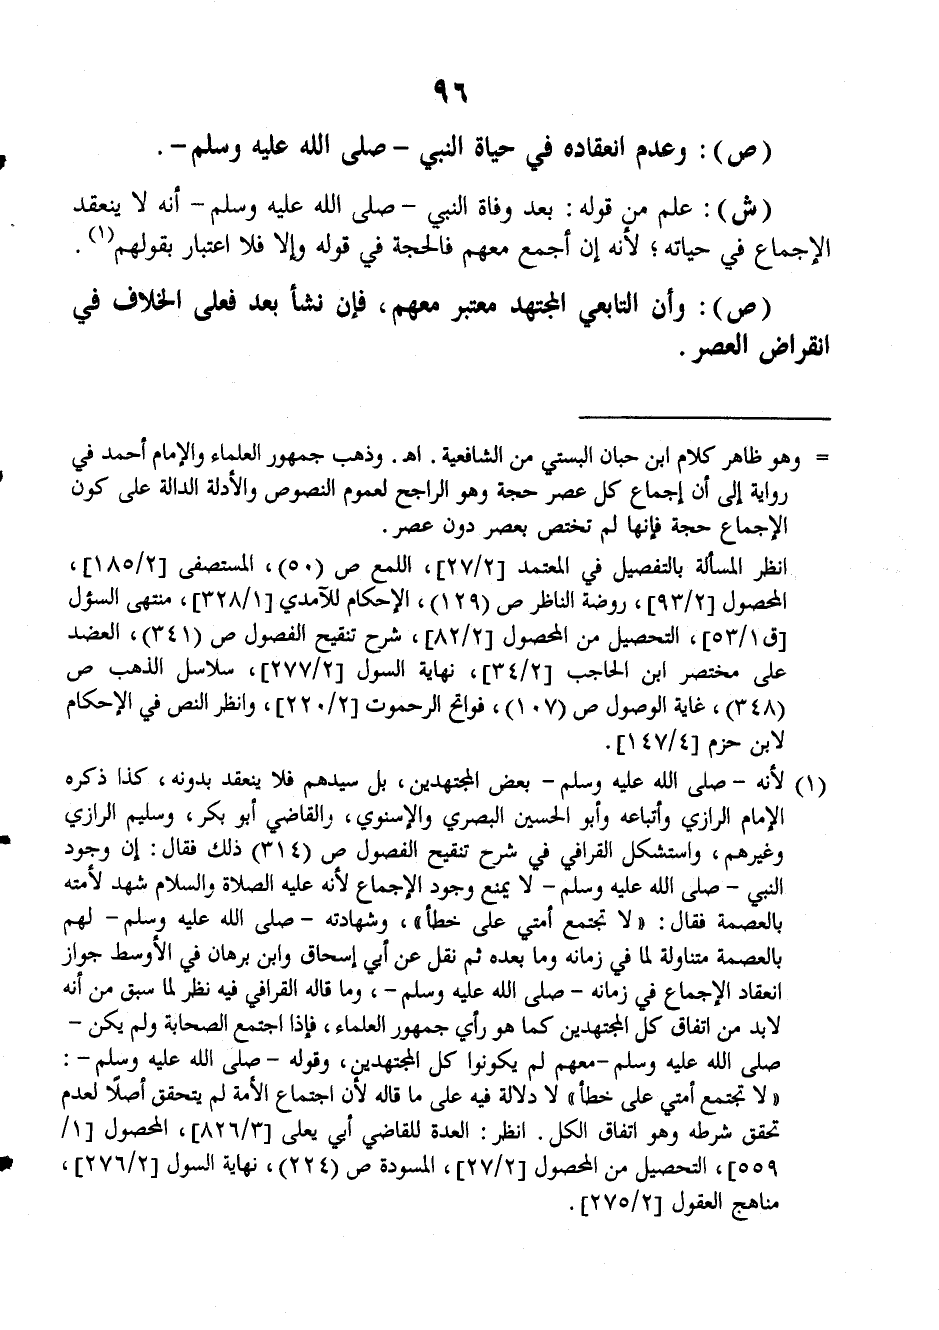 ٩٦
(ص): وعدم انعقاده في حياة النبي - صلى الله عليه وسلم -.
(ش): علم من قوله: بعد وفاة النبي - صلى الله عليه وسلم - أنه لا ينعقد
الإجماع في حياته؛ لأنه إن أجمع معهم فالحجة في قوله وإلا فلا اعتبار بقولهم(١).
(ص): وأن التابعي المجتهد معتبر معهم، فإن نشأ بعد فعلى الخلاف في
انقراض العصر.
= وهو ظاهر كلام ابن حبان البستي من الشافعية. اهـ. وذهب جمهور العلماء والإمام أحمد في
رواية إلى أن إجماع كل عصر حجة وهو الراجح لعموم النصوص والأدلة الدالة على كون
الإجماع حجة فإنها لم تختص بعصر دون عصر.
انظر المسألة بالتفصيل في المعتمد [٢٧/٢]، اللمع ص (٥٠)، المستصفى [١٨٥/٢]،
المحصول [٩٣/٢]، روضة الناظر ص (١٢٩)، الإحكام للآمدي [٣٢٨/١]، منتهى السؤل
[ق٥٣/١]، التحصيل من المحصول [٨٢/٢]، شرح تنقيح الفصول ص (٣٤١)، العضد
على مختصر ابن الحاجب [٣٤/٢]، نهاية السول [٢٧٧/٢]، سلاسل الذهب ص
(٣٤٨)، غاية الوصول ص (١٠٧)، فواتح الرحموت [٢٢٠/٢]، وانظر النص في الإحكام
لابن حزم [١٤٧/٤].
(١) لأنه - صلى الله عليه وسلم - بعض المجتهدين، بل سيدهم فلا ينعقد بدونه، كذا ذكره
الإمام الرازي وأتباعه وأبو الحسين البصري والإسنوي، والقاضي أبو بكر، وسليم الرازي
وغيرهم، واستشكل القرافي في شرح تنقيح الفصول ص (٣١٤) ذلك فقال: إن وجود
النبي - صلى الله عليه وسلم - لا يمنع وجود الإجماع لأنه عليه الصلاة والسلام شهد لأمته
بالعصمة فقال: «لا تجتمع أمتي على خطأ»، وشهادته - صلى الله عليه وسلم - لهم
بالعصمة متناولة لما في زمانه وما بعده ثم نقل عن أبي إسحاق وابن برهان في الأوسط جواز
انعقاد الإجماع في زمانه - صلى الله عليه وسلم -، وما قاله القرافي فيه نظر لما سبق من أنه
لابد من اتفاق كل المجتهدين كما هو رأي جمهور العلماء، فإذا اجتمع الصحابة ولم يكن -
صلى الله عليه وسلم -معهم لم يكونوا كل المجتهدين، وقوله - صلى الله عليه وسلم -:
«لا تجتمع أمتي على خطأ» لا دلالة فيه على ما قاله لأن اجتماع الأمة لم يتحقق أصلًا لعدم
تحقق شرطه وهو اتفاق الكل. انظر: العدة للقاضي أبي يعلى [٨٢٦/٣]، المحصول [١/
٥٥٩]، التحصيل من المحصول [٢٧/٢]، المسودة ص (٢٢٤)، نهاية السول [٢٧٦/٢]،
مناهج العقول [٢٧٥/٢].